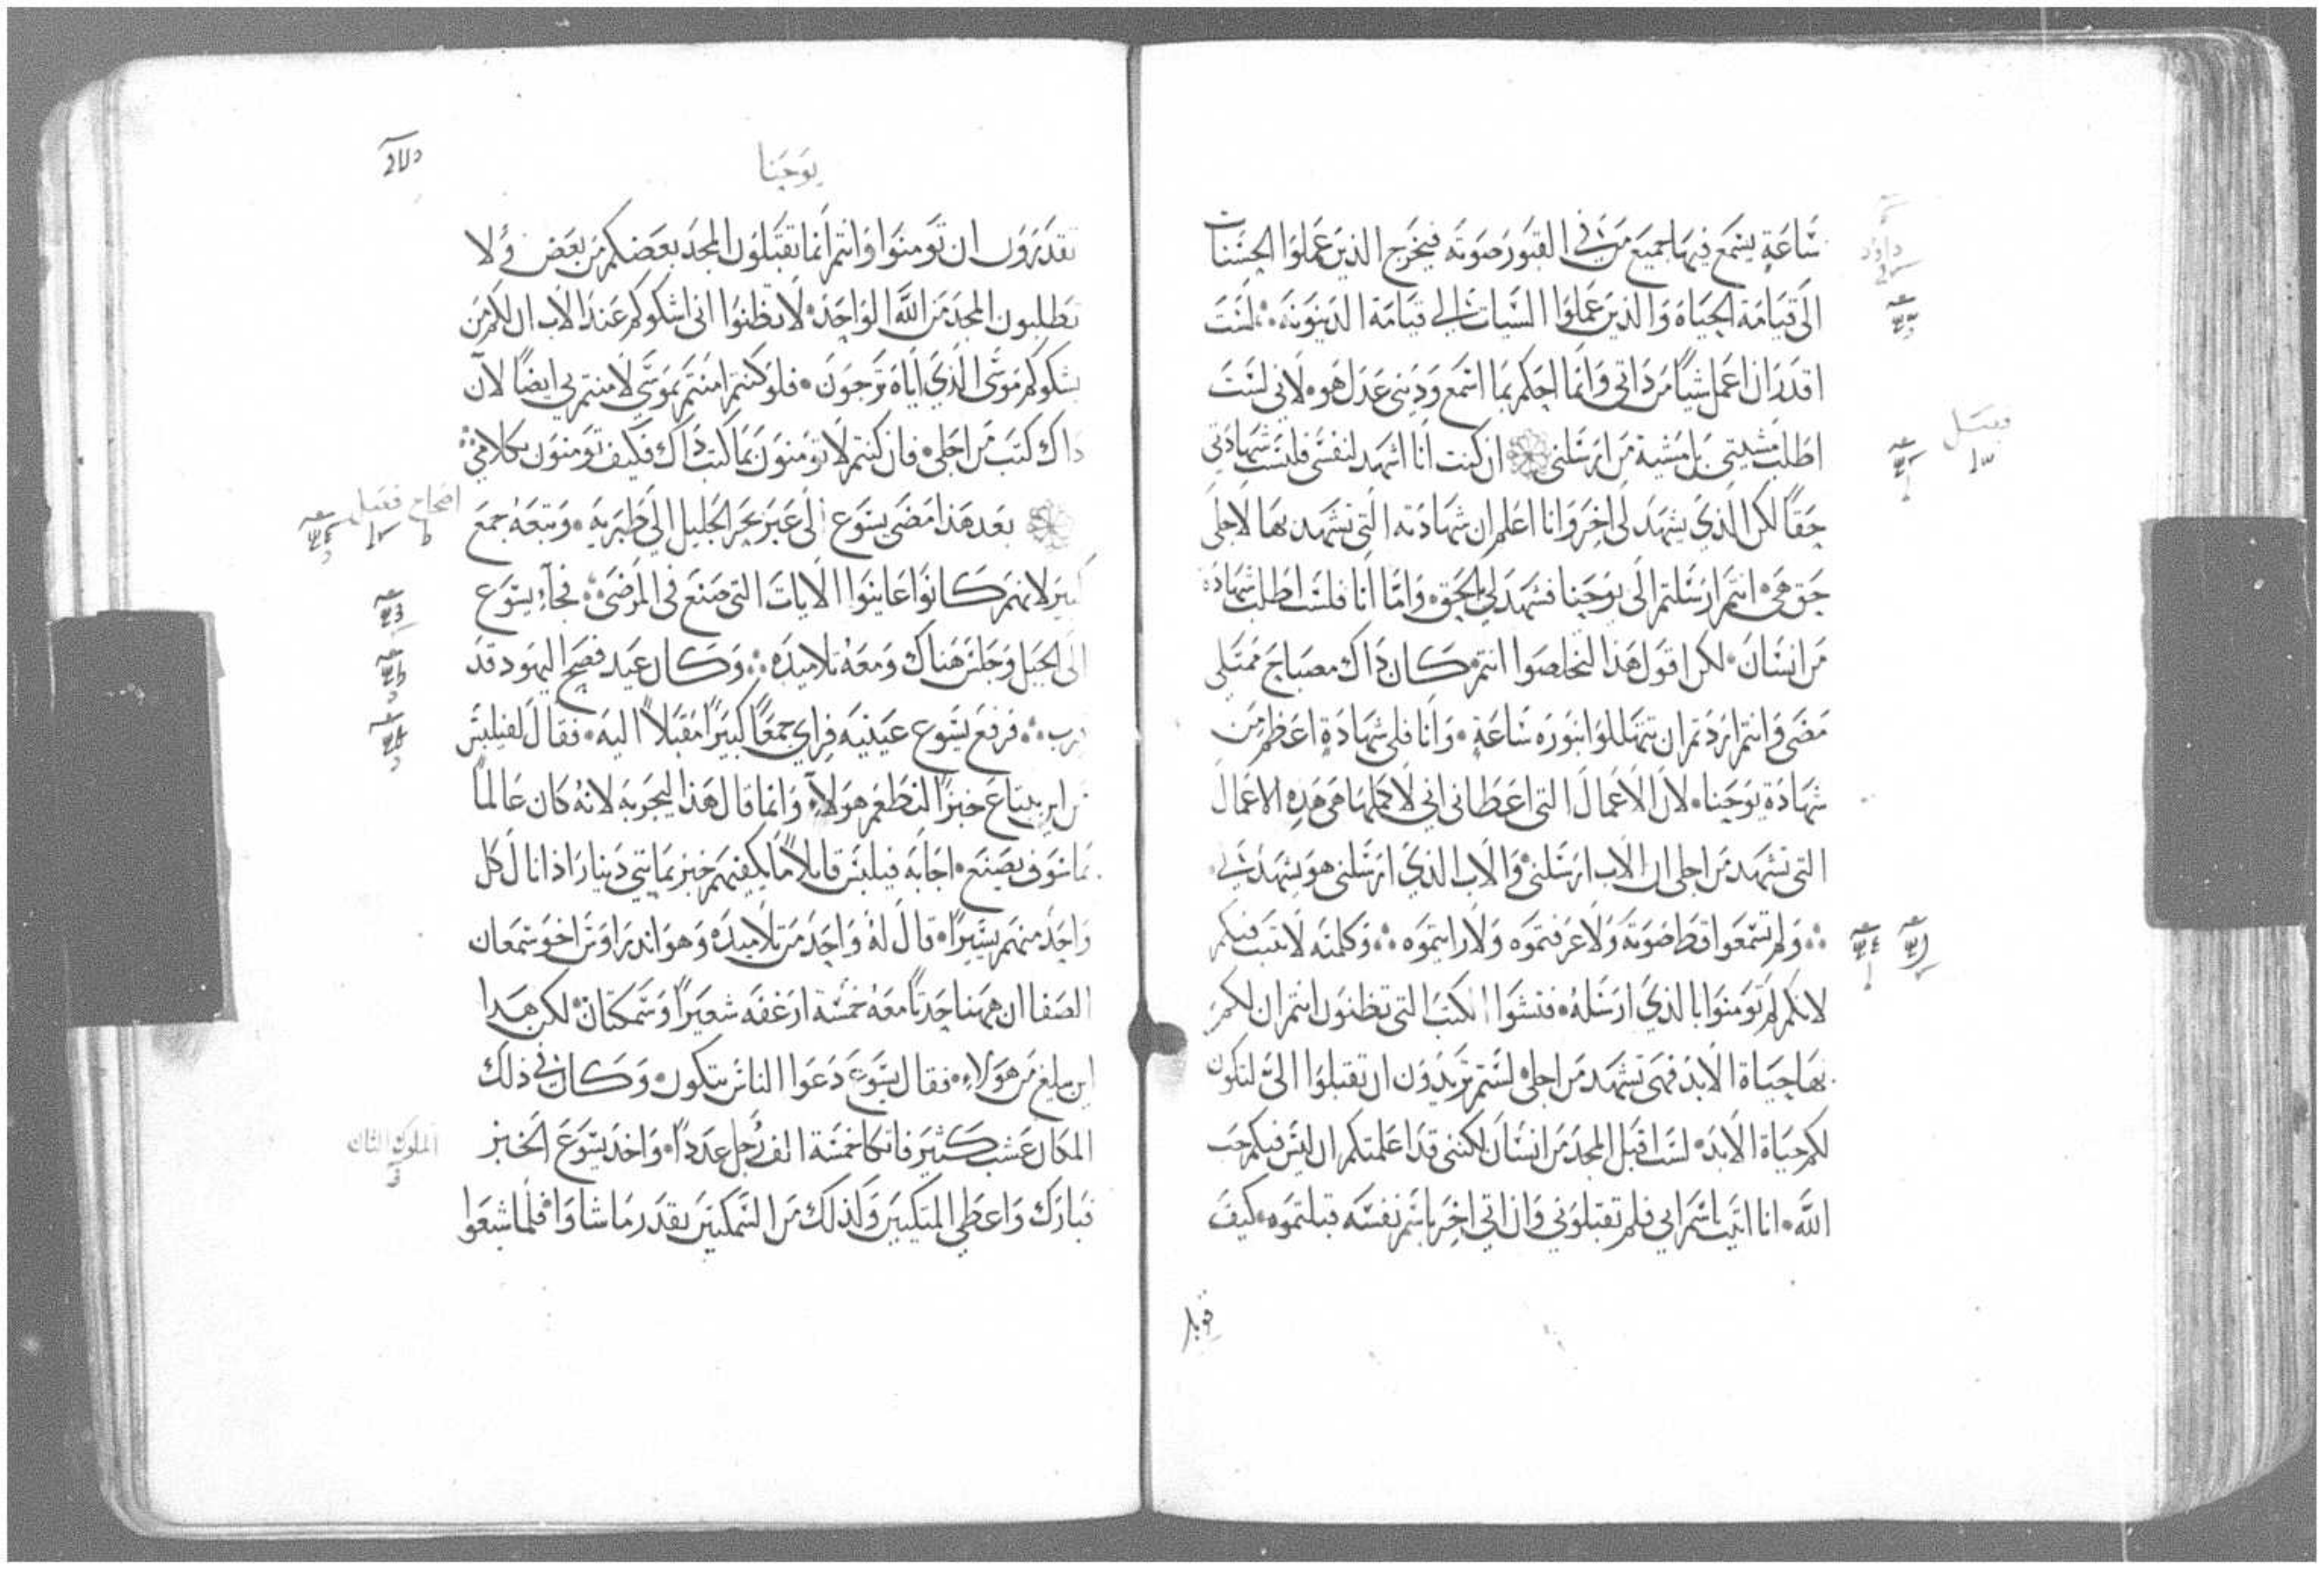 ساعة يسمع فيها جميع من في القبور صوته فيخرج الذين عملوا الحسنات
الى قيامة الحياة والذين عملوا السيات الي قيامة الدينونة ∴ لست
اقدر ان اعمل شيًا من ذاتي وانما احكم بما اسمع وديني عدل هو • لاني لست
اطلب مشيتي بل مشية من ارسلني ان كنت انا اشهد لنفسي فليست شهادتي
حقًا لكن الذي يشهد لى اخر وانا اعلم ان شهادته التي تشهد بها لاجلى
حق هى • انتم ارسلتم الى يوحنا فشهد لي بالحق • واما انا فلست اطلب شهادة
من انسان • لكن اقول هذا لتخلصوا انتم • كان ذاك مصباح ممتلي
مضى وانتم اردتم ان تتهللوا بنوره ساعةٍ • وانا فلي شهادةٍ اعظم من
شهادة يوحنا • لان الاعمال التى اعطاني ابي لاكملها هى هذه الاعمال
التى تشهد من اجلى ان الاب ارسلني • والاب الذي ارسلنى هو يشهد لى •
∴ ولم تسمعوا قط صوته ولا عرفتموه ولا رايتموه ∴ وكلمته لا تثبت فيكم
لانكم لم تومنوا بالذي ارسله • فتشوا الكتب التى تظنون انتم ان لكم
بها حياة الابد فهى تشهد من اجلى • لستم تريدون ان تقبلوا الىّ لتكون
لكم حياة الابد • لست اقبل المجد من انسان لكننى قد اعلمتكم ان ليس فيكم حب
الله • انا اتيت باسم ابي فلم تقبلوني وان اتي اخر باسم نفسه قبلتموه • كيف
داوود
فصل
قوبل
يوحنا
تقدرون ان تومنوا وانتم انما تقبلون المجد بعضكم من بعض ولا
تطلبون المجد من الله الواحد • لا تظنوا انى اشكوكم عند الاب ان لكم من
يشكوكم موسى الذي اياه ترجون • فلو كنتم امنتم بموسي لامنتم بي ايضًا لان
ذاك كتب من اجلى • فان كنتم لا تومنون بما كتب ذاك فكيف تومنون بكلامي ∴
بعد هذا مضى يسوع الى عبر بحر الجليل الى طبرية • وتبعه جمع
كبير لانهم كانوا عاينوا الايات التى صنع فى المرضى ∴ فجاء يسوع
الى الجبل وجلس هناك ومعه تلاميذه ∴ وكان عيد فصح اليهود قد
قرب ∴ فرفع يسوع عينيه فراي جمعًا كبيرًا مقبلاً اليه • فقال لفيلبس
من اين نبتاع خبزًا لنطعم هولاء • وانما قال هذا ليجربه لانه كان عالمًا
بما سوف يصنع • اجابه فيلبس قايلاً ما يكفيهم خبز بمايتي دينار اذا نال كل
واحد منهم يسيرًا • قال له واحد من تلاميذه وهو اندراوس اخو سمعان
الصفا ان ههنا حدثًا معه خمسة ارغفه شعيرًا وسمكتان • لكن هدا
اين يبلغ من هولاء • فقال يسوع دعوا الناس يتكون • وكان في ذلك
المكان عشب كثير فاتكا خمسة الف رجل عددًا • واخد يسوع الخبز
فبارك واعطى المتكيين وكذلك من السمكتين بقدر ما شاوا • فلما شبعوا
اصحاح فصل
الملوك الثاني